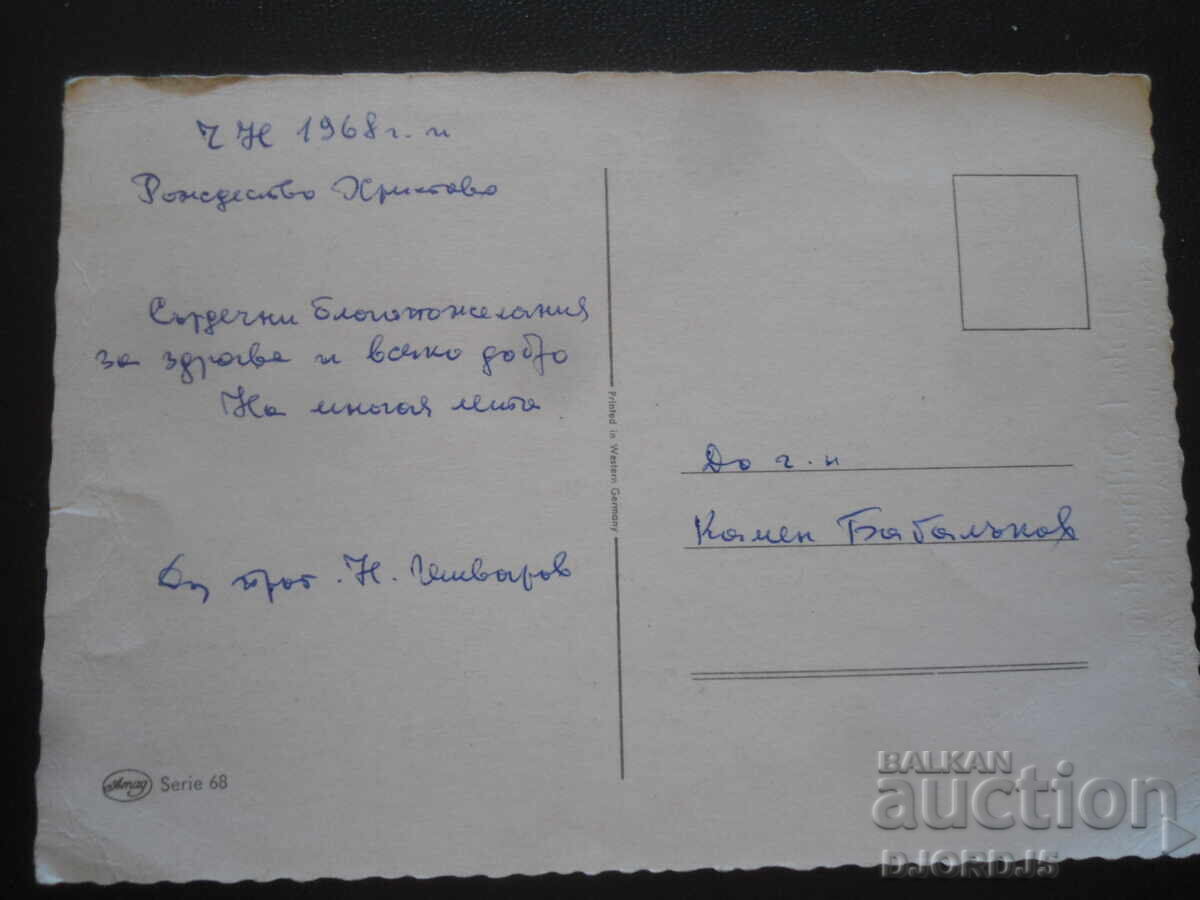 ЧН 1968 г. и
Рождество Христово
Сърдечни благопожелания
за здраве и всяко добро
На многая лета
прот. Н.
Printed in Western Germany
До г. н
Камен Бабалъков
Amag Serie 68
BALKAN
auction
DJORDJ5